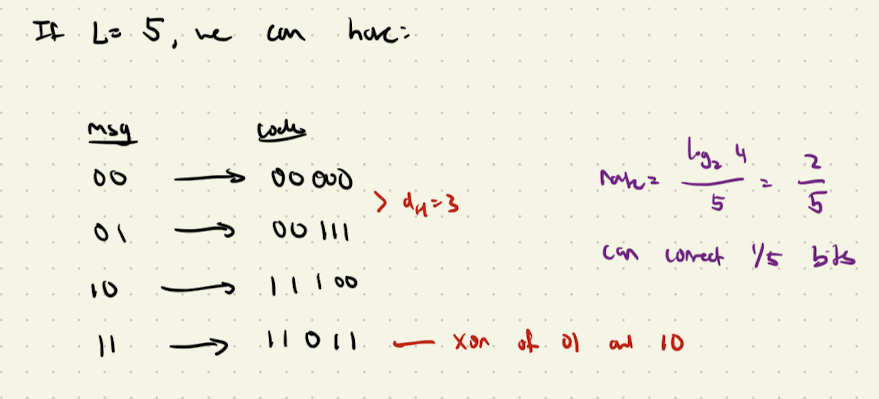 If L= 5, we can have:
msg code
00 → 00000 > dH=3
01 → 00111
10 → 11100
11 → 11011 ← xor of 01 and 10
rate = log₂ 4 / 5 = 2/5
can correct 1/5 bits